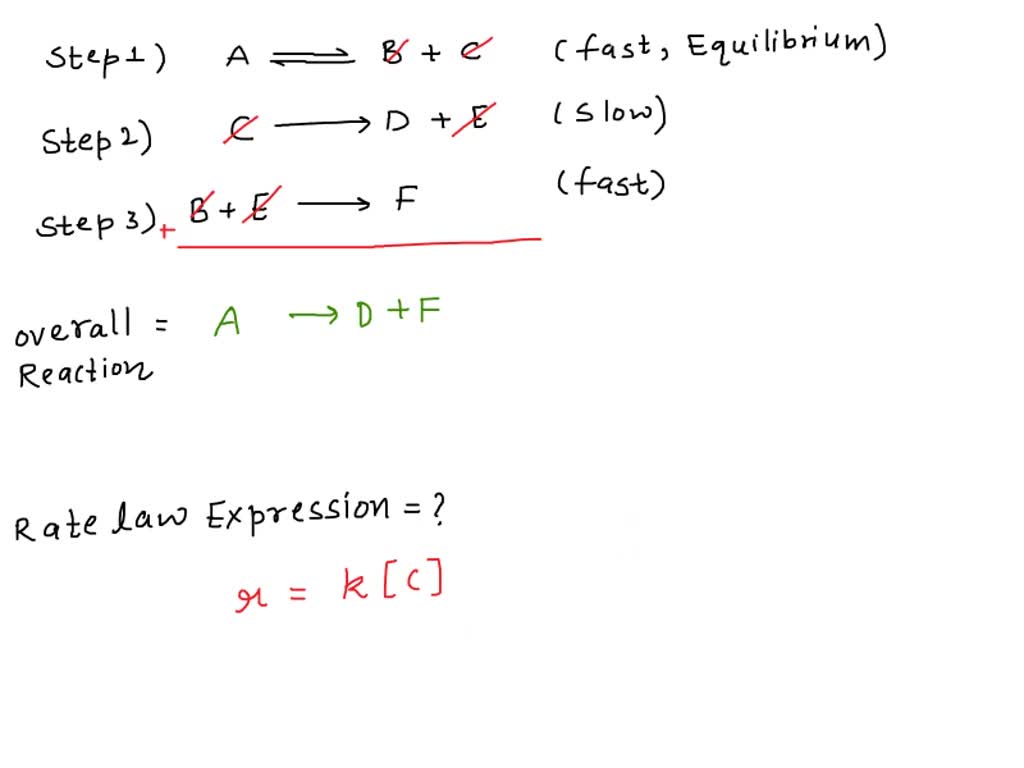 Step 1) A ⇌ B + C (fast, Equilibrium)
Step 2) C ⟶ D + E (Slow)
Step 3) + B + E ⟶ F (fast)
overall = A ⟶ D + F
Reaction
Rate law Expression = ?
r = k [C]